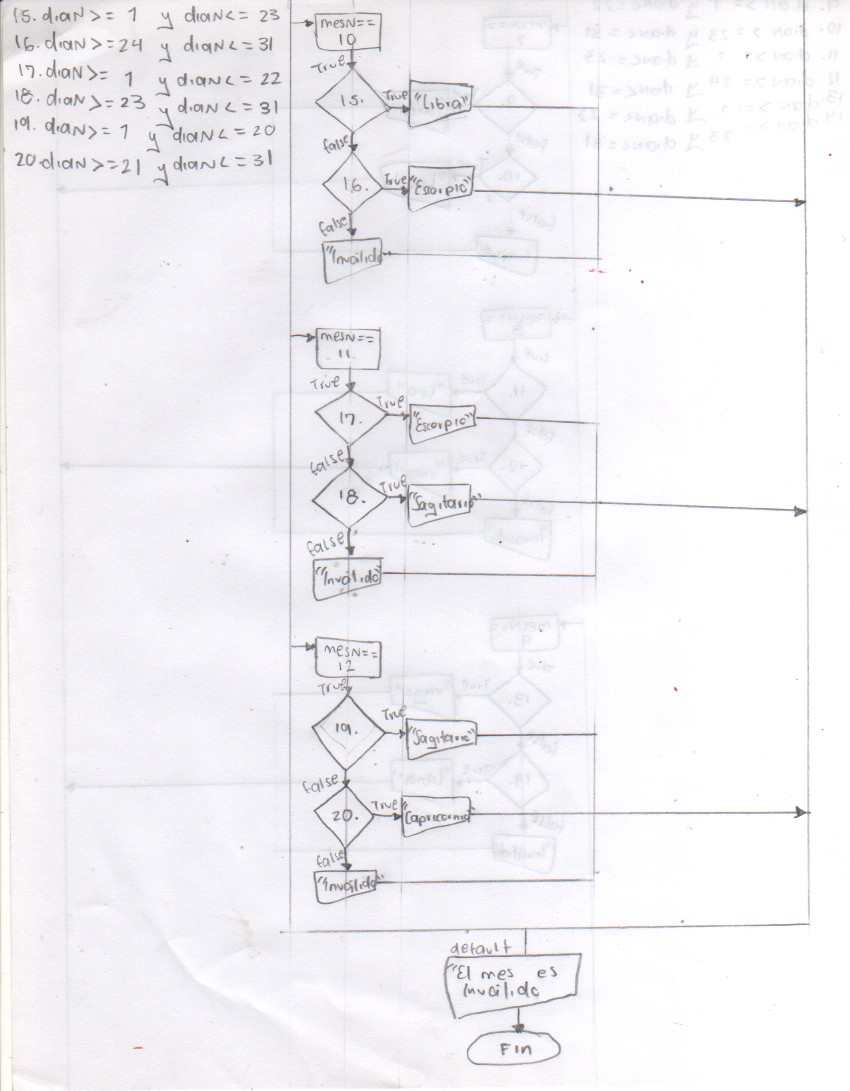 15. diaN >= 1 y diaN <= 23
16. diaN >= 24 y diaN <= 31
17. diaN >= 1 y diaN <= 22
18. diaN >= 23 y diaN <= 31
19. diaN >= 1 y diaN <= 20
20. diaN >= 21 y diaN <= 31
mesN==
10
True
15.
True
"Libra"
false
16.
True
"Escorpio"
false
"Inválido
mesN==
11
True
17.
True
"Escorpio"
false
18.
True
"Sagitario"
false
"Inválido"
mesN==
12
True
19.
True
"Sagitario"
false
20.
True
"Capricornio"
false
"Inválido"
default
"El mes es
Inválido
Fin